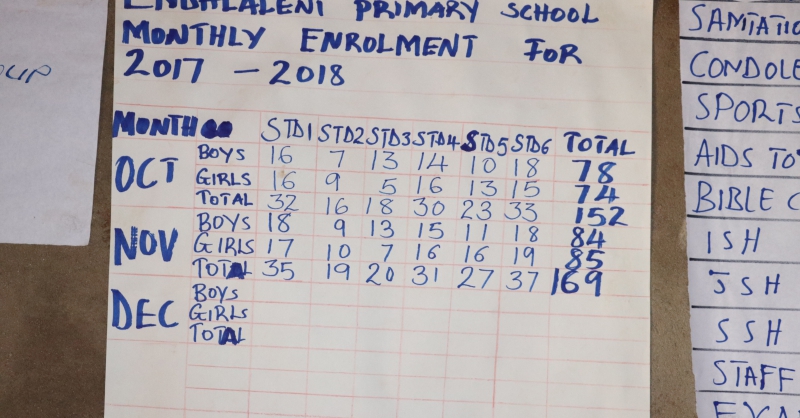 PRIMARY SCHOOL
MONTHLY ENROLMENT FOR
2017 - 2018
MONTH STD1 STD2 STD3 STD4 STD5 STD6 TOTAL
OCT
BOYS 16 7 13 14 10 18 78
GIRLS 16 9 5 16 13 15 74
TOTAL 32 16 18 30 23 33 152
NOV
BOYS 18 9 13 15 11 18 84
GIRLS 17 10 7 16 16 19 85
TOTAL 35 19 20 31 27 37 169
DEC
BOYS
GIRLS
TOTAL
CONDOLE
SPORTS
AIDS TO
BIBLE C
ISH
JSH
SSH
STAFF